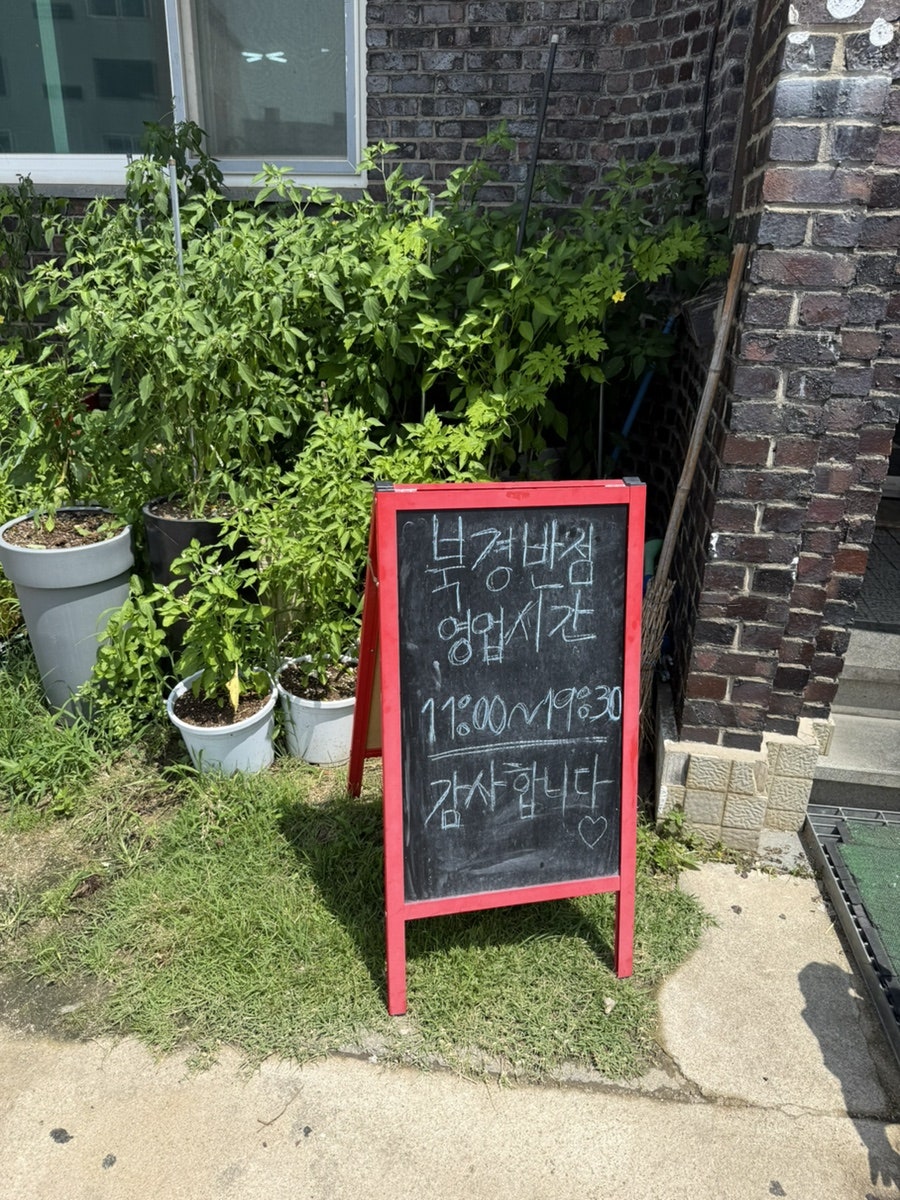 북경반점
영업시간
11:00~19:30
감사합니다
♡